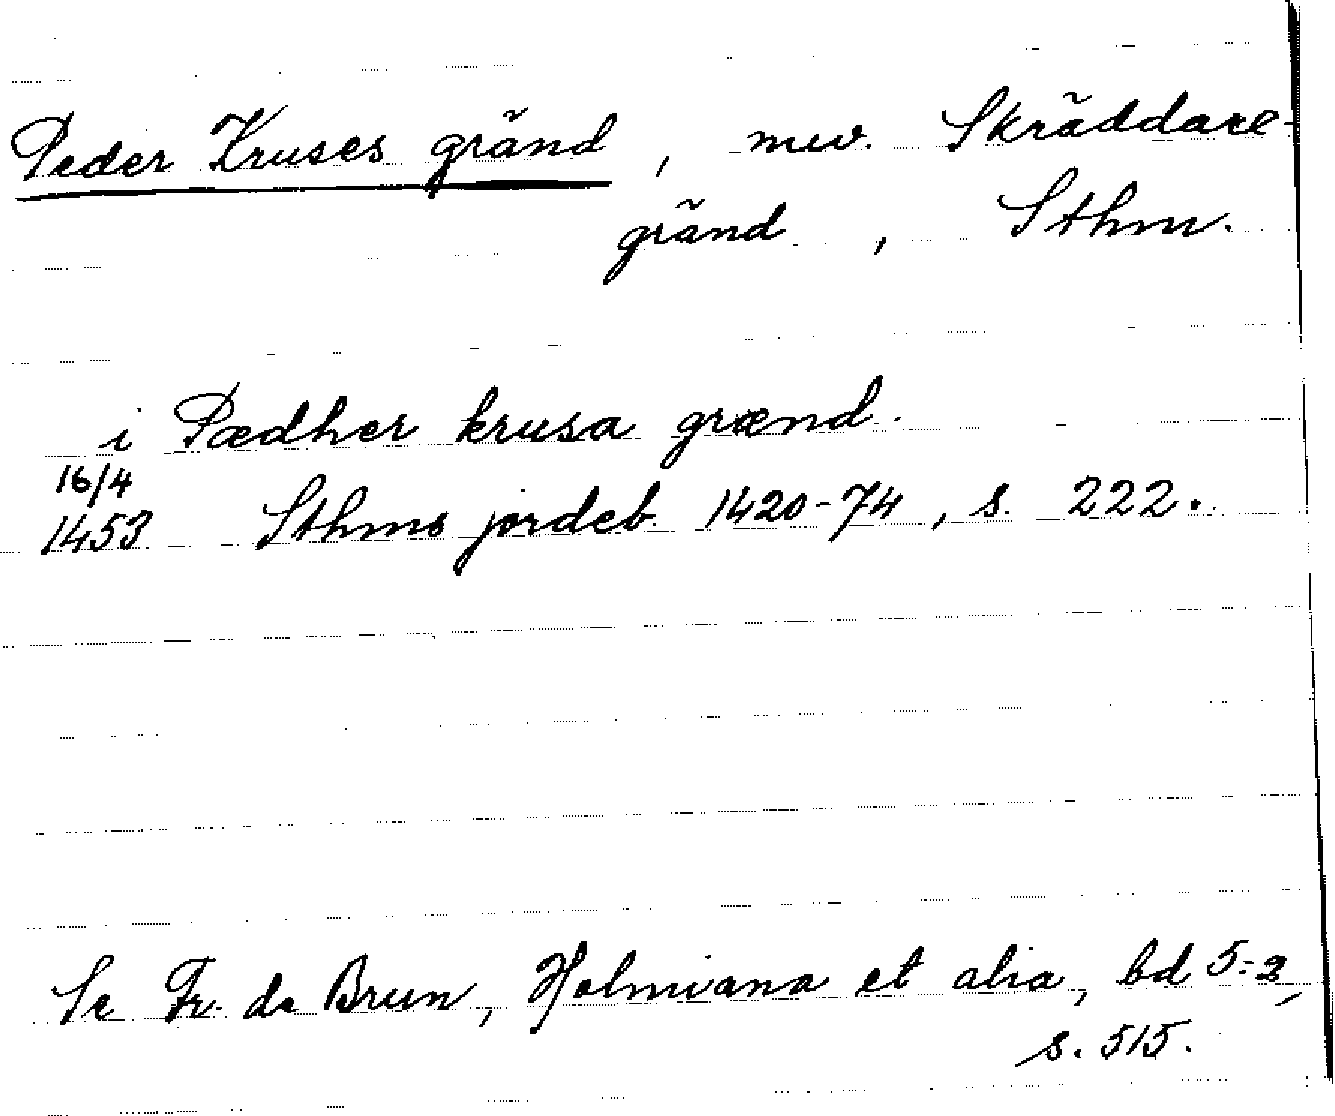 Peder Kruses gränd, nuv. Skräddare-
gränd, Sthm.
i Pædher krusa grænd.
16/4
1453 Sthms jordeb. 1420-74, s. 222.
Se Fr. de Brun, Holmiana et alia, bd 5:2,
s. 515.